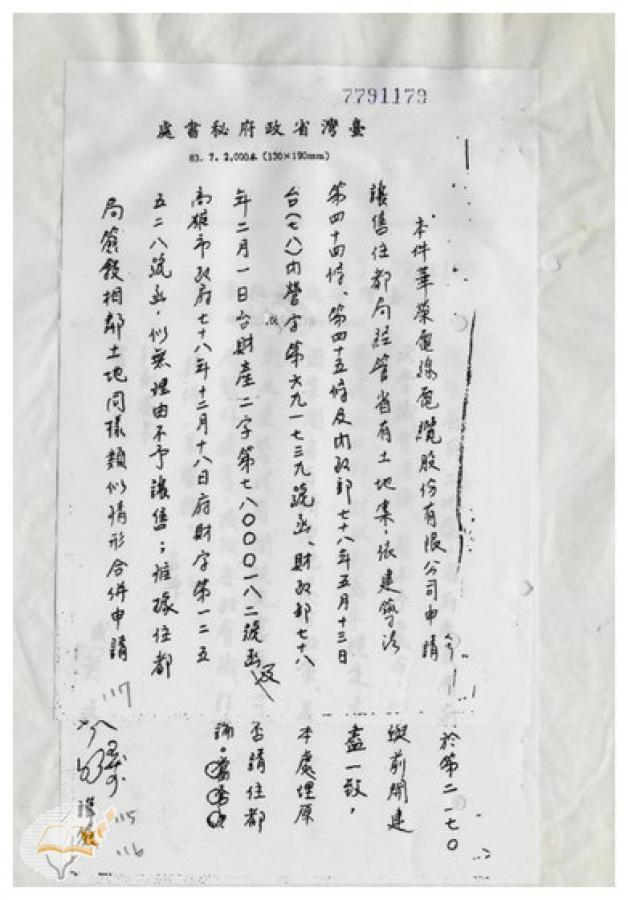 7791179
臺灣省政府秘書處
83. 7. 2,000本 (130×190mm)
本件華榮電線電纜股份有限公司申請
讓售住都局經管省有土地案，依建築法
第四十四條、第四十五條及內政部七十八年五月十三日
台(七八)內營字第六九一七三九號函、財政部七十八
年二月一日台財產二字第七八〇〇〇一八二號函及
高雄市政府七十八年十二月十八日府財字第一二五
五二八號函，似無理由不予讓售；惟據住都
局簽敘相鄰土地同樣類似情形合併申請
117
於第二一七〇
前開建
盡一致，
本處埋原
否請住都
115
116